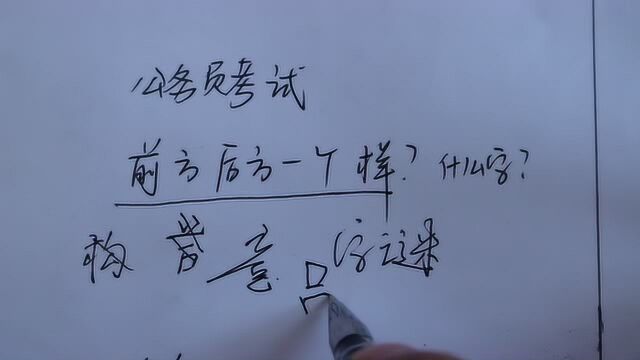 公务员考试
前方后方一个样? 什么字?
构 背 意 字谜